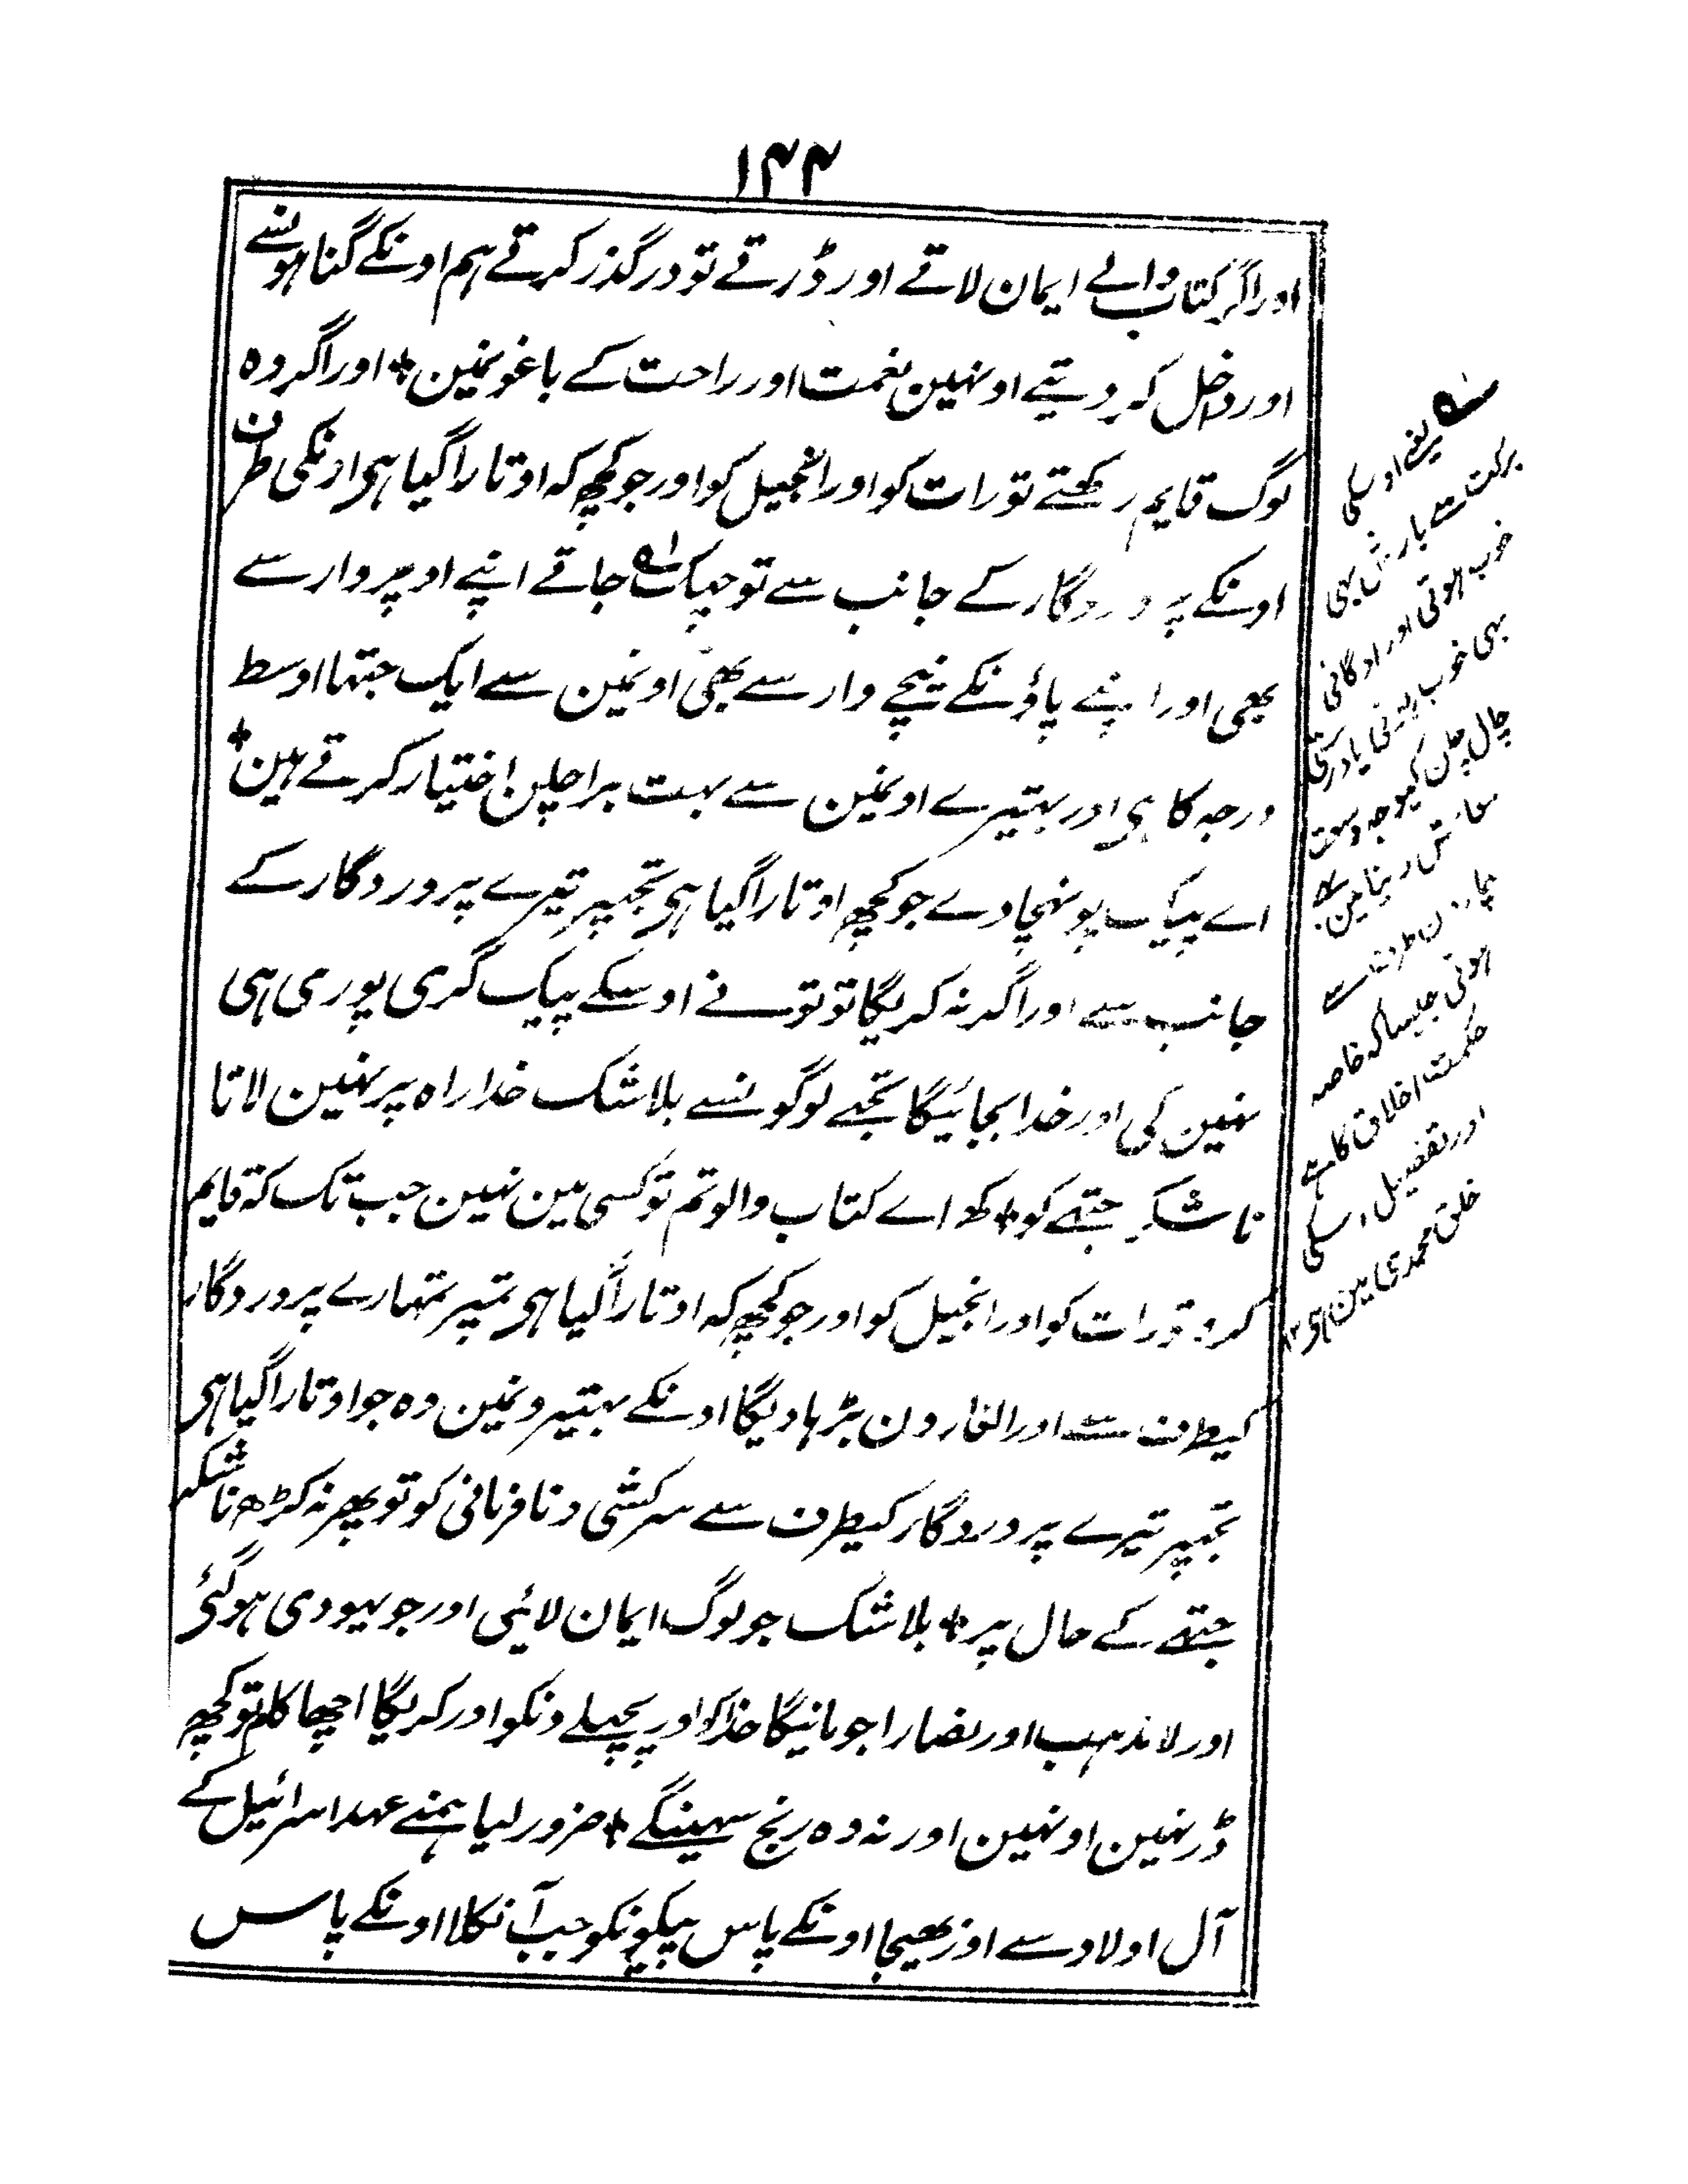 ۱۴۴
اور اگر کتاب والے ایمان لاتے اور ڈرتے تو درگذر کرتے ہم اونکے گناہونسے
اور داخل کر دیتے اونہین نعمت اور راحت کے باغونمین * اور اگر وہ
لوگ قایم رکھتے تورات کو اور انجیل کو اور جو کچھ کہ اوتارا گیا ہی اونکی طرف
اونکے پروردگار کے جانب سے تو چپک جاتے اپنے اوپر وار سے
بھی اور اپنے پاؤنکے نیچے وار سے بھی اونمین سے ایک جتھا اوسط
درجہ کا ہی اور بہتیرے اونمین سے بہت برا چلن اختیار کرتے ہین *
اے پیک پونہچا دے جو کچھ اوتارا گیا ہی تجھپر تیرے پروردگار کے
جانب سے اور اگر نہ کریگا تو تونے اوسکے پیک گری پوری ہی
نہین کی اور خدا بچائیگا تجھے لوگونسے بلاشک خدا راہ پر نہین لاتا
ناشکر جتھے کو * کہ اے کتاب والو تم تو کسی مین نہین جب تک کہ قایم
کرو تورات کو اور انجیل کو اور جو کچھ کہ اوتارا گیا ہی تمپر تمہارے پروردگار
کیطرف سے اور الغارون بڑہا دیگا اونکے بہتیرونمین وہ جو اوتارا گیا ہی
تجھپر تیرے پروردگار کیطرف سے سرکشی و نافرمانی کو تو پھر نہ کڑھ ناشکر
جتھے کے حال پر * بلاشک جو لوگ ایمان لائی اور جو یہودی ہوگئی
اور لامذہب اور نصارا جو مانیگا خدا کو اور پچھلے دنکو اور کریگا اچھا کام تو کچھ
ڈر نہین اونہین اور نہ وہ رنج سہینگے * ضرور لیا ہمنے عہد اسرائیل کے
آل اولاد سے اور بھیجا اونکے پاس پیکونکو جب آ نکلا اونکے پاس
یعنے اوسکی
برکت سے بارش بھی
خوب ہوتی اور اوگائی
بھی خوب
چال چلن کیوجہ
دنیا مین
ہوتی جیسا کہ خاصہ
حکمت اخلاق کا ہے
اور تفصیل اسکی
خلق محمدی مین ہی ۱۲